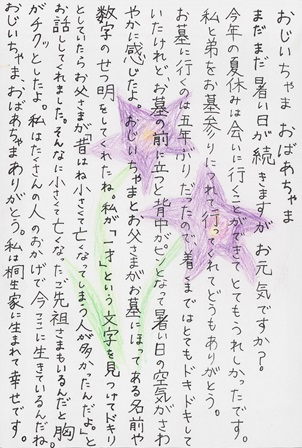 おじいちゃま　おばあちゃま
まだまだ暑い日が続きますが、お元気ですか？。
今年の夏休みは会いに行くことができて、とてもうれしかったです。
私と弟をお墓参りにつれて行ってくれてどうもありがとう。
お墓に行くのは五年ぶりだったので、着くまではとてもドキドキして
いたけれど、お墓の前に立つと背中がピンとなって暑い日の空気がさわ
やかに感じたよ。おじいちゃまとお父さまがお墓にほってある名前や
数字のせつ明をしてくれたね。私が「一才」という文字を見つけてドキリ
としていたらお父さまが「昔はね小さくて亡くなってしまう人が多かったんだよ。」と
お話してくれました。そんなに小さくて亡くなったご先祖さまもいるんだと胸
がチクッとしたよ。私はたくさんの人のおかげで今ここに生きているんだね。
おじいちゃま、おばあちゃまありがとう。私は桐生家に生まれて幸せです。